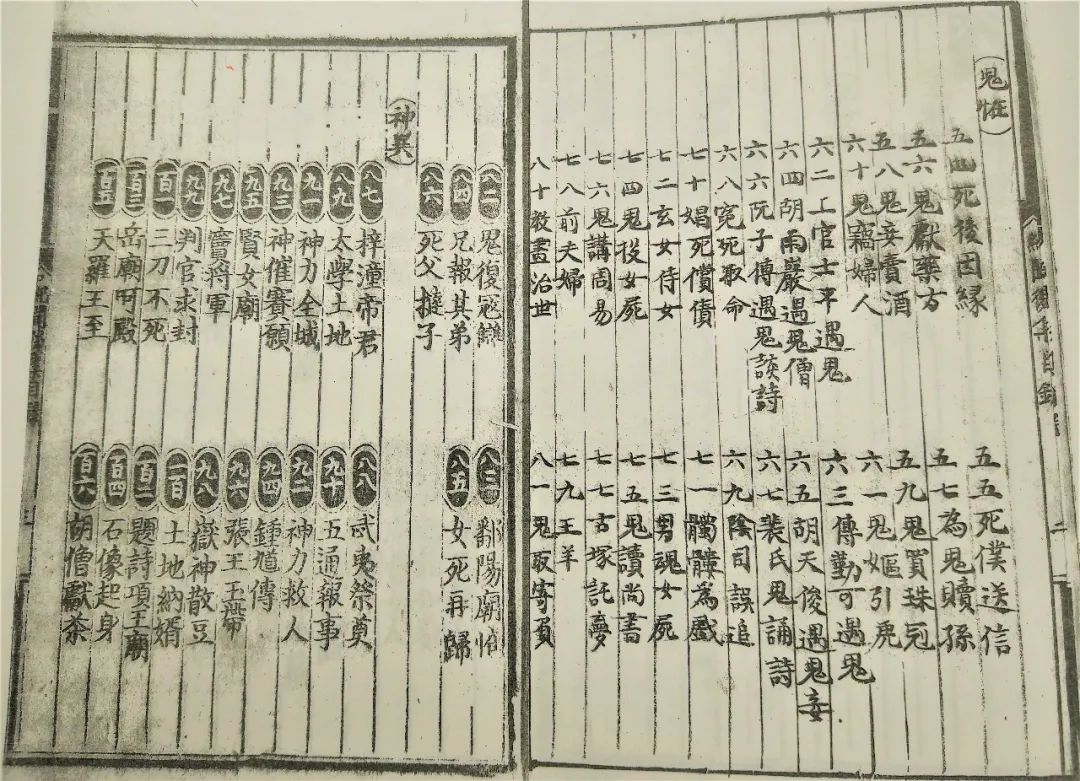 (鬼怪)
五四死後因緣 五五死僕送信
五六鬼獻藥方 五七為鬼贖孫
五八鬼妾賣酒 五九鬼買珠冠
六十鬼竊婦人 六一鬼嫗引
六二工官士卒遇鬼 六三傳勤可遇鬼
六四胡雨巖遇鬼僧 六五胡天俊遇鬼妾
六六阮子傳遇鬼談詩 六七裴氏鬼誦詩
六八冤死取命 六九陰司誤追
七十娼死償債 七一髑髏為戲
七二玄女侍女 七三男魂女屍
七四鬼投女屍 七五鬼讀尚書
七六鬼講周易 七七古塚託夢
七八前夫婦 七九王羊
八十救盡治世 八一鬼取寄
八二鬼復寇讎 八三鄱陽廟怪
八四兄報其弟 八五女死再歸
八六死父撻子
(神異)
八七梓潼帝君 八八武夷祭奠
八九太學土地 九十五通報事
九一神力全城 九二神力救人
九三神催賽願 九四鍾馗傳
九五賢女廟 九六張王玉帶
九七竇將軍 九八嶽神散豆
九九判官求封 一百土地納婿
百一三刀不死 百二題詩項王廟
百三岳廟呵殿 百四石像起身
百五天羅王至 百六胡僧獻茶